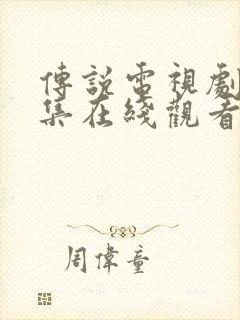 傳說電視劇
集在綫觀看
周偉童